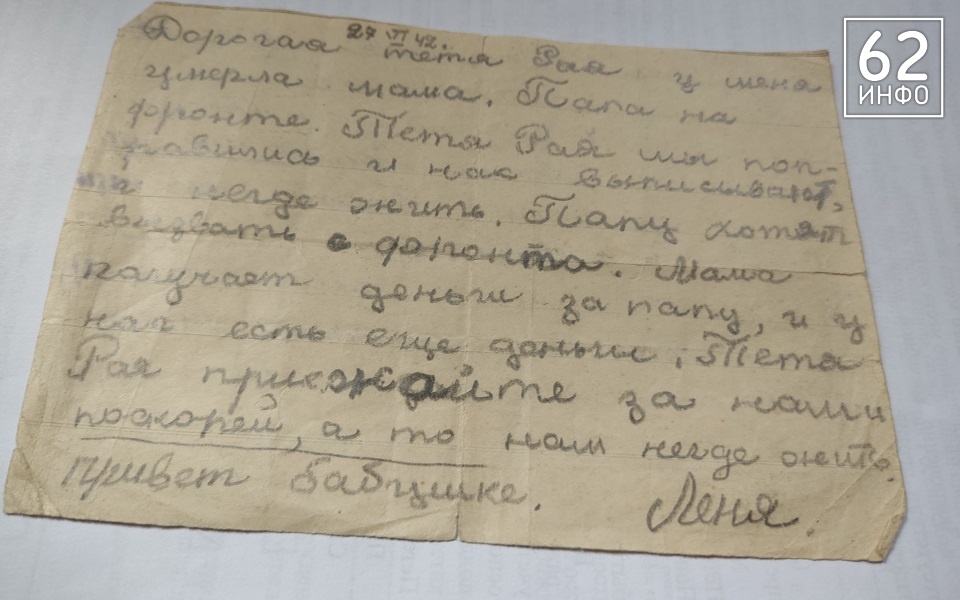 27 II 42.
Дорогая тетя Рая у меня
умерла мама. Папа на
фронте. Тетя Рая мы поп-
равились и нас выписывают,
и негде жить. Папу хотят
вызвать с фронта. Мама
получает деньги за папу, и у
нас есть еще деньги. Тетя
Рая приезжайте за нами
поскорей, а то нам негде жить.
Привет бабушке. Леня.
62
ИНФО